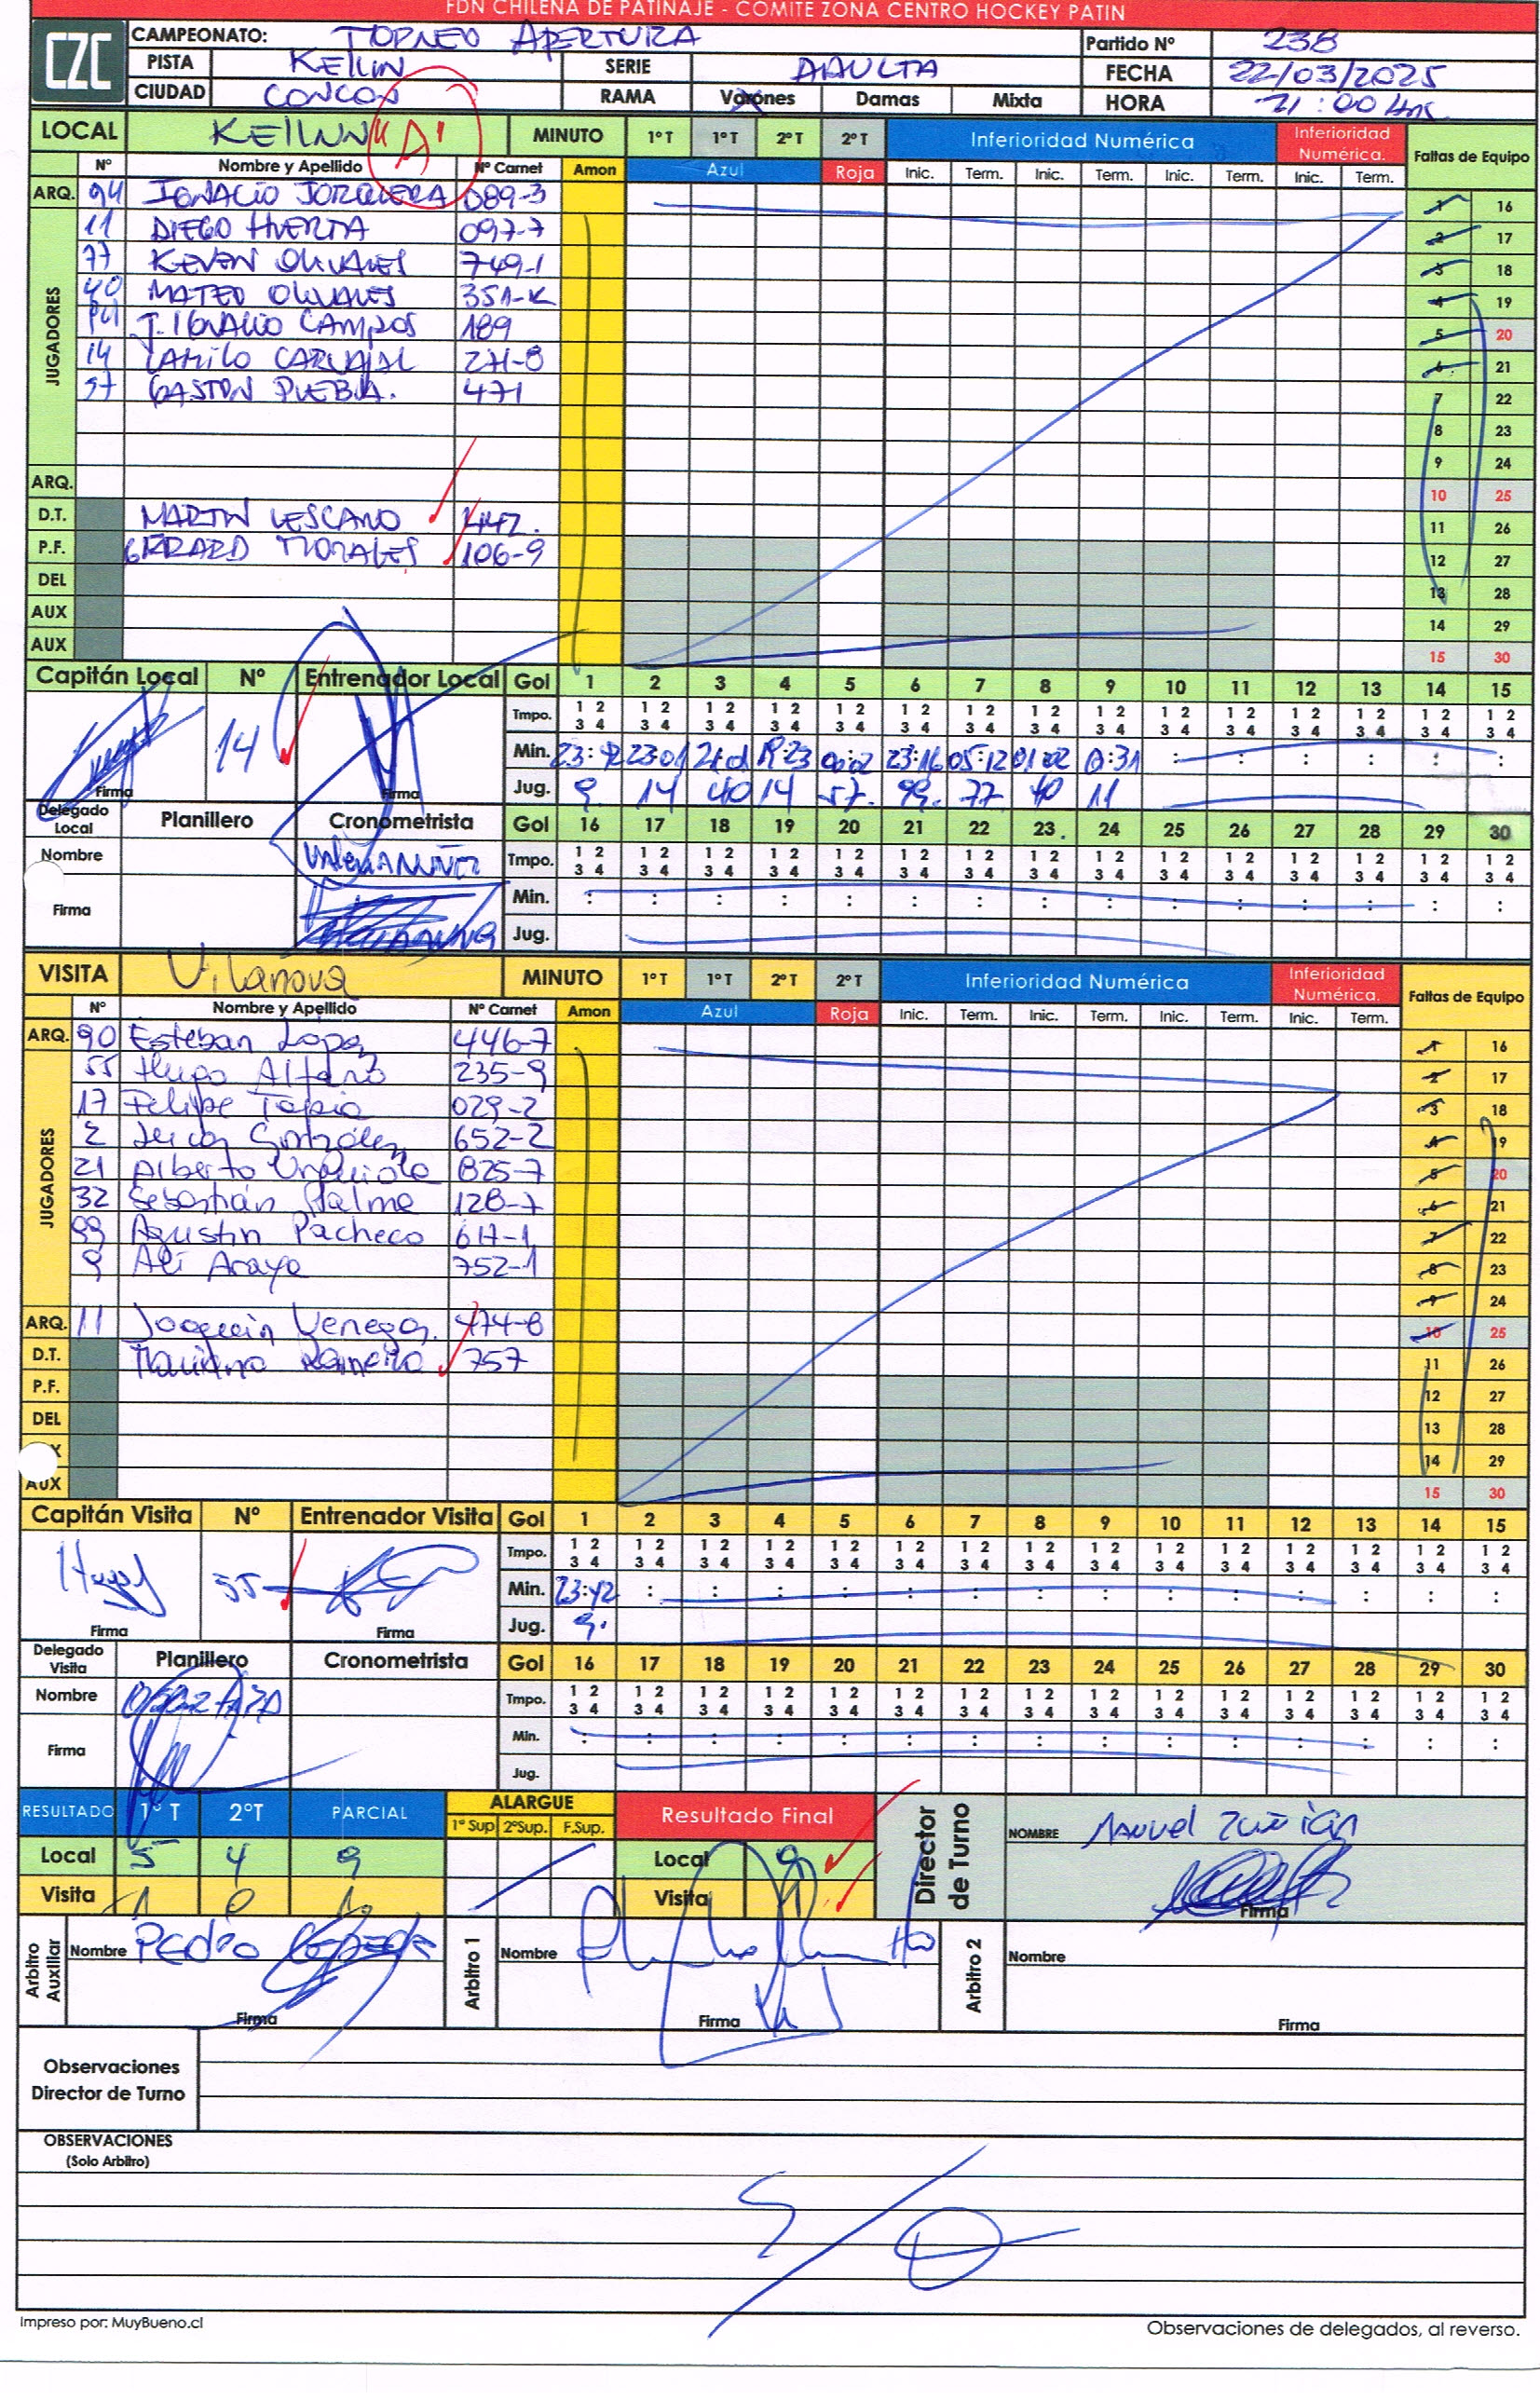 FDN CHILENA DE PATINAJE - COMITE ZONA CENTRO HOCKEY PATIN
CZC
CAMPEONATO: TORNEO APERTURA Partido Nº 238
PISTA KEILUN SERIE ADULTA FECHA 22/03/2025
CIUDAD CONCON RAMA Varones Damas Mixta HORA 21:00 Hrs
LOCAL KEILUN "A" MINUTO 1º T 1º T 2º T 2º T Inferioridad Numérica Inferioridad Numérica. Faltas de Equipo
Nº Nombre y Apellido Nº Carnet Amon Azul Roja Inic. Term. Inic. Term. Inic. Term. Inic. Term.
ARQ. 94 IGNACIO JORQUERA 089-3 1 16
JUGADORES
11 DIEGO HUERTA 097-7 2 17
77 KEVEN OLIVARES 749-1 3 18
40 MATEO OLIVARES 351-K 4 19
J. IGNACIO CAMPOS 189 5 20
14 CAMILO CARVAJAL 271-8 6 21
57 GASTON PUEBLA. 471 7 22
8 23
9 24
ARQ. 10 25
D.T. MARTIN LESCANO 442. 11 26
P.F. GERARD MORALES 106-9 12 27
DEL 13 28
AUX 14 29
AUX 15 30
Capitán Local Nº Entrenador Local Gol 1 2 3 4 5 6 7 8 9 10 11 12 13 14 15
Tmpo. 1 2 1 2 1 2 1 2 1 2 1 2 1 2 1 2 1 2 1 2 1 2 1 2 1 2 1 2 1 2
3 4 3 4 3 4 3 4 3 4 3 4 3 4 3 4 3 4 3 4 3 4 3 4 3 4 3 4 3 4
14 Min. 23:42 23:01 23:16 05:12 01:02 : : : : : :
Firma Firma Jug. 9. 14 40 14 57. 99. 77 40 11
Delegado Local Planillero Cronometrista Gol 16 17 18 19 20 21 22 23 24 25 26 27 28 29 30
Nombre Tmpo. 1 2 1 2 1 2 1 2 1 2 1 2 1 2 1 2 1 2 1 2 1 2 1 2 1 2 1 2 1 2
3 4 3 4 3 4 3 4 3 4 3 4 3 4 3 4 3 4 3 4 3 4 3 4 3 4 3 4 3 4
Firma Min. : : : : : : : : : : : : : : :
Jug.
VISITA Vilanova MINUTO 1º T 1º T 2º T 2º T Inferioridad Numérica Inferioridad Numérica. Faltas de Equipo
Nº Nombre y Apellido Nº Carnet Amon Azul Roja Inic. Term. Inic. Term. Inic. Term. Inic. Term.
ARQ. 90 Esteban López 446-7 1 16
JUGADORES
55 Hugo Alfaro 235-9 2 17
17 Felipe Tapia 029-2 3 18
2 González 652-2 4 19
21 Alberto Urquiola 825-7 5 20
32 Sebastián Palma 128-7 6 21
99 Agustin Pacheco 617-1 7 22
9 Ali Araya 752-1 8 23
9 24
ARQ. 11 Joaquin Venegas. 474-8 10 25
D.T. 757 11 26
P.F. 12 27
DEL 13 28
14 29
AUX 15 30
Capitán Visita Nº Entrenador Visita Gol 1 2 3 4 5 6 7 8 9 10 11 12 13 14 15
Tmpo. 1 2 1 2 1 2 1 2 1 2 1 2 1 2 1 2 1 2 1 2 1 2 1 2 1 2 1 2 1 2
3 4 3 4 3 4 3 4 3 4 3 4 3 4 3 4 3 4 3 4 3 4 3 4 3 4 3 4 3 4
55 Min. 23:42 : : : : : : : : : : : : : :
Firma Firma Jug. 9.
Delegado Visita Planillero Cronometrista Gol 16 17 18 19 20 21 22 23 24 25 26 27 28 29 30
Nombre Tmpo. 1 2 1 2 1 2 1 2 1 2 1 2 1 2 1 2 1 2 1 2 1 2 1 2 1 2 1 2 1 2
3 4 3 4 3 4 3 4 3 4 3 4 3 4 3 4 3 4 3 4 3 4 3 4 3 4 3 4 3 4
Firma Min. : : : : : : : : : : : : : : :
Jug.
RESULTADO 1º T 2ºT PARCIAL ALARGUE Resultado Final Director de Turno NOMBRE Manuel Zuñiga
1º Sup 2ºSup. F.Sup.
Local 5 4 9 Local 9
Visita 1 0 1. Visita 1 Firma
Arbitro Auxiliar Nombre Pedro Arbitro 1 Nombre Arbitro 2 Nombre
Firma Firma Firma
Observaciones
Director de Turno
OBSERVACIONES
(Solo Arbitro)
S/O
Impreso por: MuyBueno.cl Observaciones de delegados, al reverso.